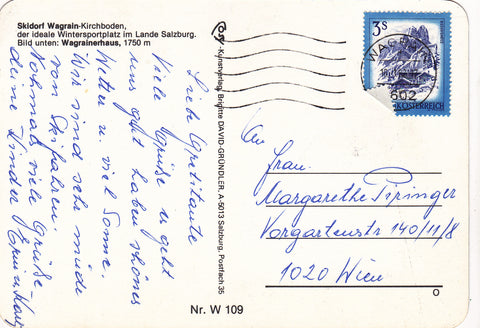 Skidorf Wagrain-Kirchboden,
der ideale Wintersportplatz im Lande Salzburg.
Bild unten: Wagrainerhaus, 1750 m
Liebe Greititante
Viele Grüße u. geht
uns gut haben schönes
Wetter u. viel Sonne.
Wir sind sehr müde
von Skifahren.
Nochmals viele Grüße
deine Kinder
Kunstverlag Brigitte DAVID-GRÜNDLER, A-5013 Salzburg, Postfach 35
3S
WAGRAIN
5602
ÖSTERREICH
An
Frau
Margarethe Piringer
Vorgartenstr 140/11/8
1020 Wien
Nr. W 109